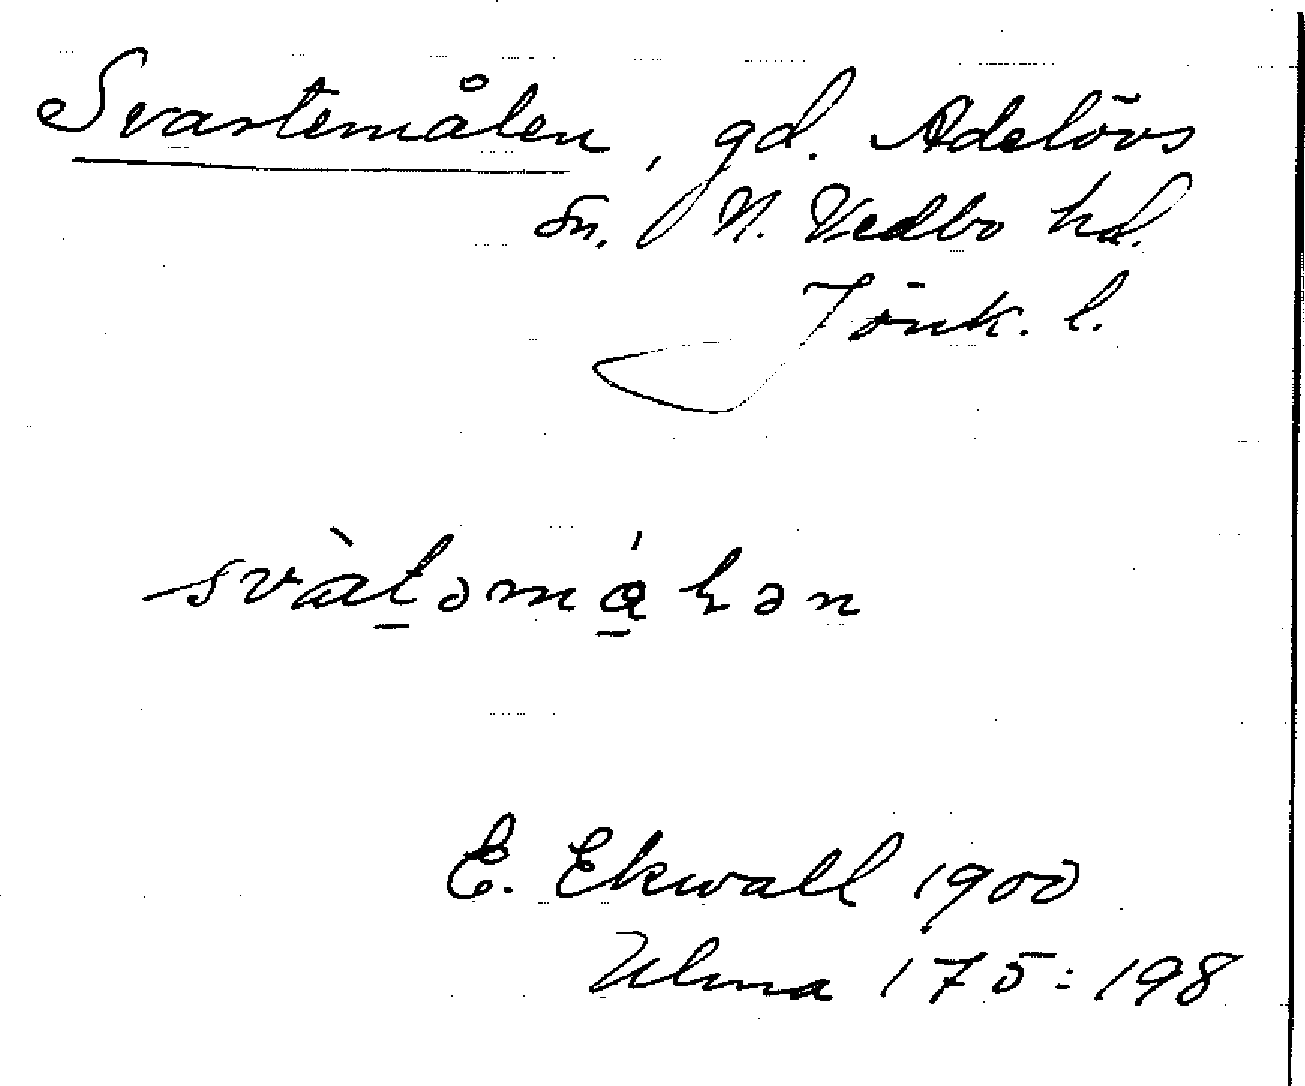 Svartemålen, gd. Adelövs
sn. N. Vedbo hd.
Jönk. l.
E. Ekwall 1900
Ulma 175:198